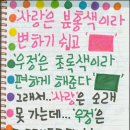 '사랑은 분홍색이라
변하기 쉽고
'우정'은 초록색이라
편하게 해준다
그래서..'사랑'은 오래
못 가는데...'우정'은